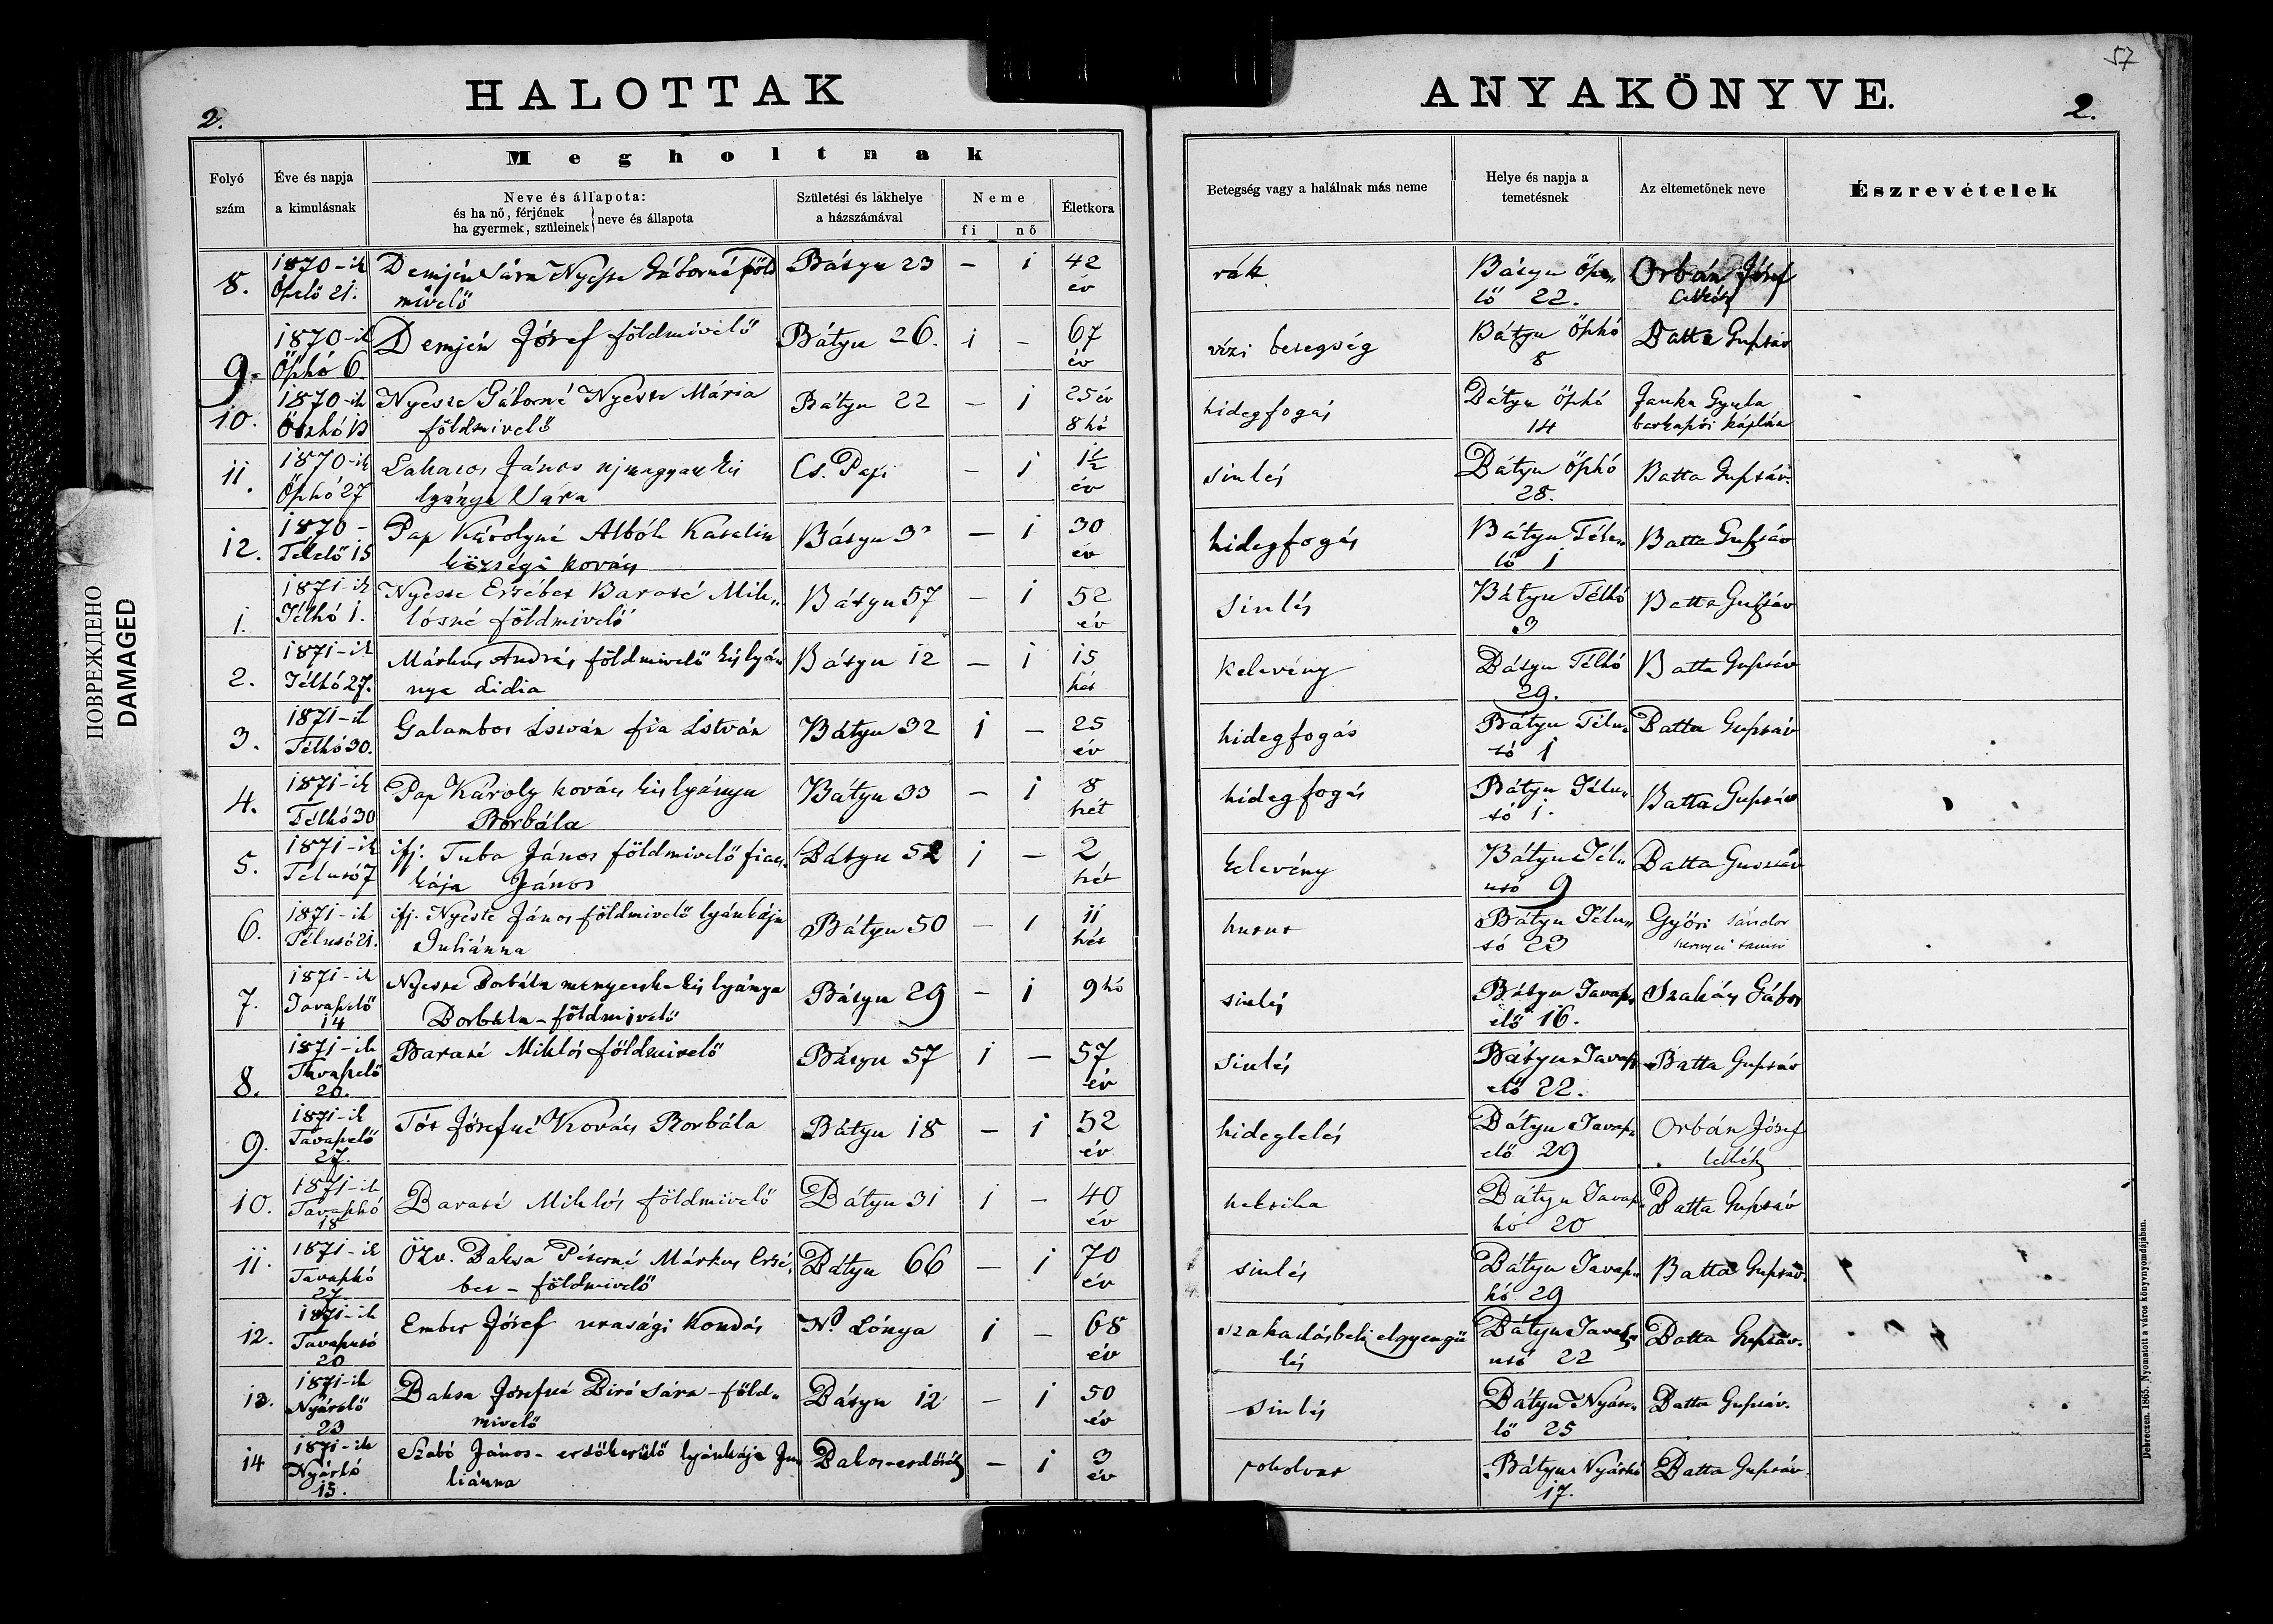 57
HALOTTAK ANYAKÖNYVE.
2. 2.
ПОВРЕЖДЕНО
DAMAGED
Megholtnak
Folyó szám
Éve és napja a kimulásnak
Neve és állapota:
és ha nő, férjének
ha gyermek, szüleinek } neve és állapota
Születési és lakhelye a házszámával
Neme
fi nő
Életkora
Betegség vagy a halálnak más neme
Helye és napja a temetésnek
Az eltemetőnek neve
Észrevételek
8. 1870-ik Őpelő 21. Demjén Sára Nyeste Gáborné földmivelő Bátyu 23 – 1 42 év rák Bátyu Őpelő 22. Orbán Jósef
9. 1870-ik Őphó 6. Demjén Jósef földmivelő Bátyu 26. 1 – 67 év vízi betegség Bátyu őphó 8 Batta Gusztáv
10. 1870-ik Nyeste Gáborné Nyeste Mária földmivelő Bátyu 22 – 1 25 év 8 hó hidegfogás Bátyu őphó 14 Janka Gyula
11. 1870-ik Őphó 27 Lakatos János ujmagyar kis lyánya Sára Cs. Papi – 1 1½ év sinlés Bátyu őphó 28. Batta Gusztáv
12. 1870- Télelő 15 Pap Károlyné Katalin községi kovács Bátyu – 1 30 év hidegfogás Bátyu Télelő 1 Batta Gusztáv
1. 1871-ik Télhó 1. Nyeste Erzsébet Baraté Miklósné földmivelő Bátyu 57 – 1 52 év sinlés Bátyu Télhó 3 Batta Gusztáv
2. 1871-ik Télhó 27. Márkus András földmivelő kis lyánya Lidia Bátyu 12 – 1 15 hét kelevény Bátyu Télhó 29. Batta Gusztáv
3. 1871-ik Télhó 30. Galambos István fia István Bátyu 32 1 – 25 év hidegfogás Bátyu Télutó 1 Batta Gusztáv
4. 1871-ik Télhó 30 Pap Károly kovács kis lyánya Borbála Bátyu 33 – 1 8 hét hidegfogás Bátyu Télutó 1. Batta Gusztáv
5. 1871-ik Télutó 7 ifj. Tuba János földmivelő fiacskája János Bátyu 52 1 – 2 hét kelevény Bátyu Télutó 9 Batta Gusztáv
6. 1871-ik Télutó 21. ifj. Nyeste János földmivelő lyánkája Juliánna Bátyu 50 – 1 11 hét hurut Bátyu Télutó 23 Győri Sándor
7. 1871-ik Tavaszelő 14 Nyeste Borbála menyecske kis lyánya Borbála – földmivelő Bátyu 29 – 1 9 hó sinlés Bátyu Tavaszelő 16. Szakács Gábor
8. 1871-ik Tavaszelő 20. Baraté Miklós földmivelő Bátyu 57 1 – 57 év sinlés Bátyu Tavaszelő 22. Batta Gusztáv
9. 1871-ik Tavaszelő 27. Tót Jósefné Kovács Borbála Bátyu 18 – 1 52 év hideglelés Bátyu Tavaszelő 29 Orbán Jósef
10. 1871-ik Tavaszhó 18 Baraté Miklós földmivelő Bátyu 31 1 – 40 év hektika Bátyu Tavaszhó 20 Batta Gusztáv
11. 1871-ik Tavaszhó 27. Özv. Baksa Péterné Márkus Ersébet – földmivelő Bátyu 66 – 1 70 év sinlés Bátyu Tavaszhó 29 Batta Gusztáv
12. 1871-ik Tavaszutó 20 Ember Jósef urasági kondás N. Lónya 1 – 68 év szakadásbeli elgyengülés Bátyu Tavaszutó 22 Batta Gusztáv.
13. 1871-ik Nyárelő 23 Baksa Jósefné Biró Sára – földmivelő Bátyu 12 – 1 50 év sinlés Bátyu Nyárelő 25 Batta Gusztáv.
14 1871-ik Nyárhó 15. Szabó János – erdőkerülő lyánkája Juliánna – 1 3 év rokolvar Bátyu Nyárhó 17. Batta Gusztáv.
Debreczen. 1865. Nyomatott a város könyvnyomdájában.